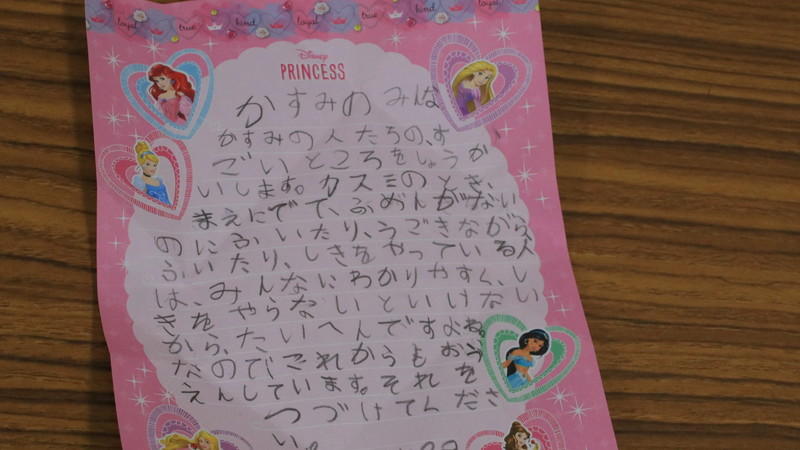 loyal true kind loyal true
Disney
PRINCESS
かすみの みな
かすみの人たちの、す
ごいところをしょうか
いします。カスミのとき、
まえにでて、ふめんがない
のにふいたり、うごきながら、
ふいたり、しきをやっている人
は、みんなにわかりやすく、し
きをやらないといけない
から、たいへんですよね。
なのでこれからもおう
えんしています。それを
つづけてくださ
い。